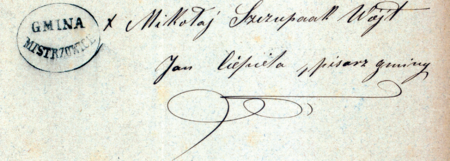 GMINA
MISTRZOWICE
x Mikołaj Szczupaak Wójt
Jan Ciepiela pisarz gminy